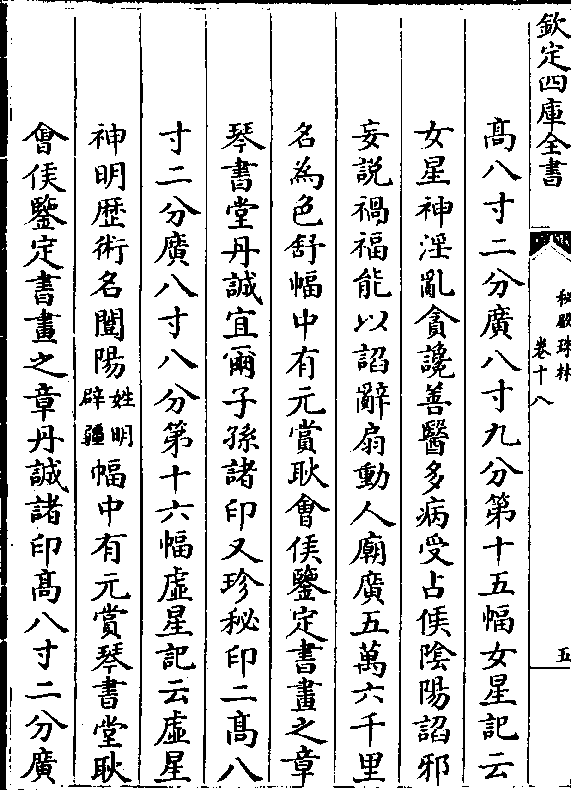 欽定四庫全書
秘殿珠林
卷十八
五
高八寸二分廣八寸九分第十五幅女星記云
女星神淫亂貪讒善醫多病受占候隂陽謟邪
妄說禍福能以謟辭扇動人廟廣五萬六千里
名為色舒幅中有元賞耿會侯鑒定書畫之章
琴書堂丹誠宜爾子孫諸印又珍秘印二高八
寸二分廣八寸八分第十六幅虛星記云虛星
神明歴術名闓陽姓明辟疆幅中有元賞琴書堂耿
會侯鑒定書畫之章丹誠諸印高八寸二分廣